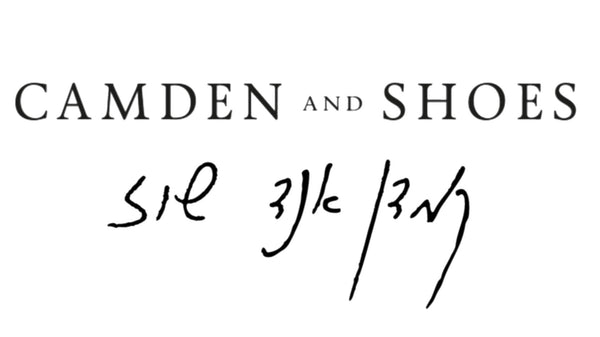 CAMDEN AND SHOES
קמדן אנד שוז